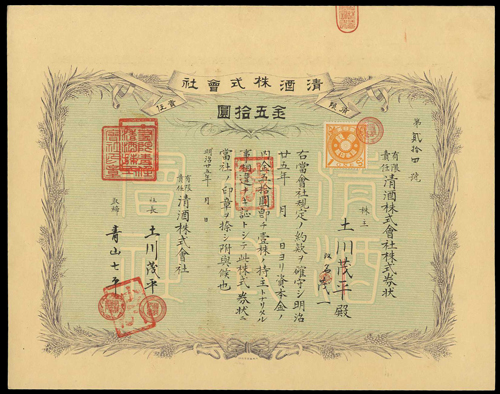 清酒株式會社
責任
有限
金五拾圓
第貳拾四號
有限責任清酒株式會社株式券狀
株主
土川茂平殿
右當會社規定ノ約款ヲ確守シ明治
廿五年 月 日ヨリ資本金ノ
內金五拾圓即チ壹株ノ持主トナリタル
事相違ナキ証トシテ此株式券狀ニ
當社ノ印章ヲ捺シ附與候也
明治廿五年 月 日
有限責任清酒株式會社
社長 土川茂平
取締 青山七平